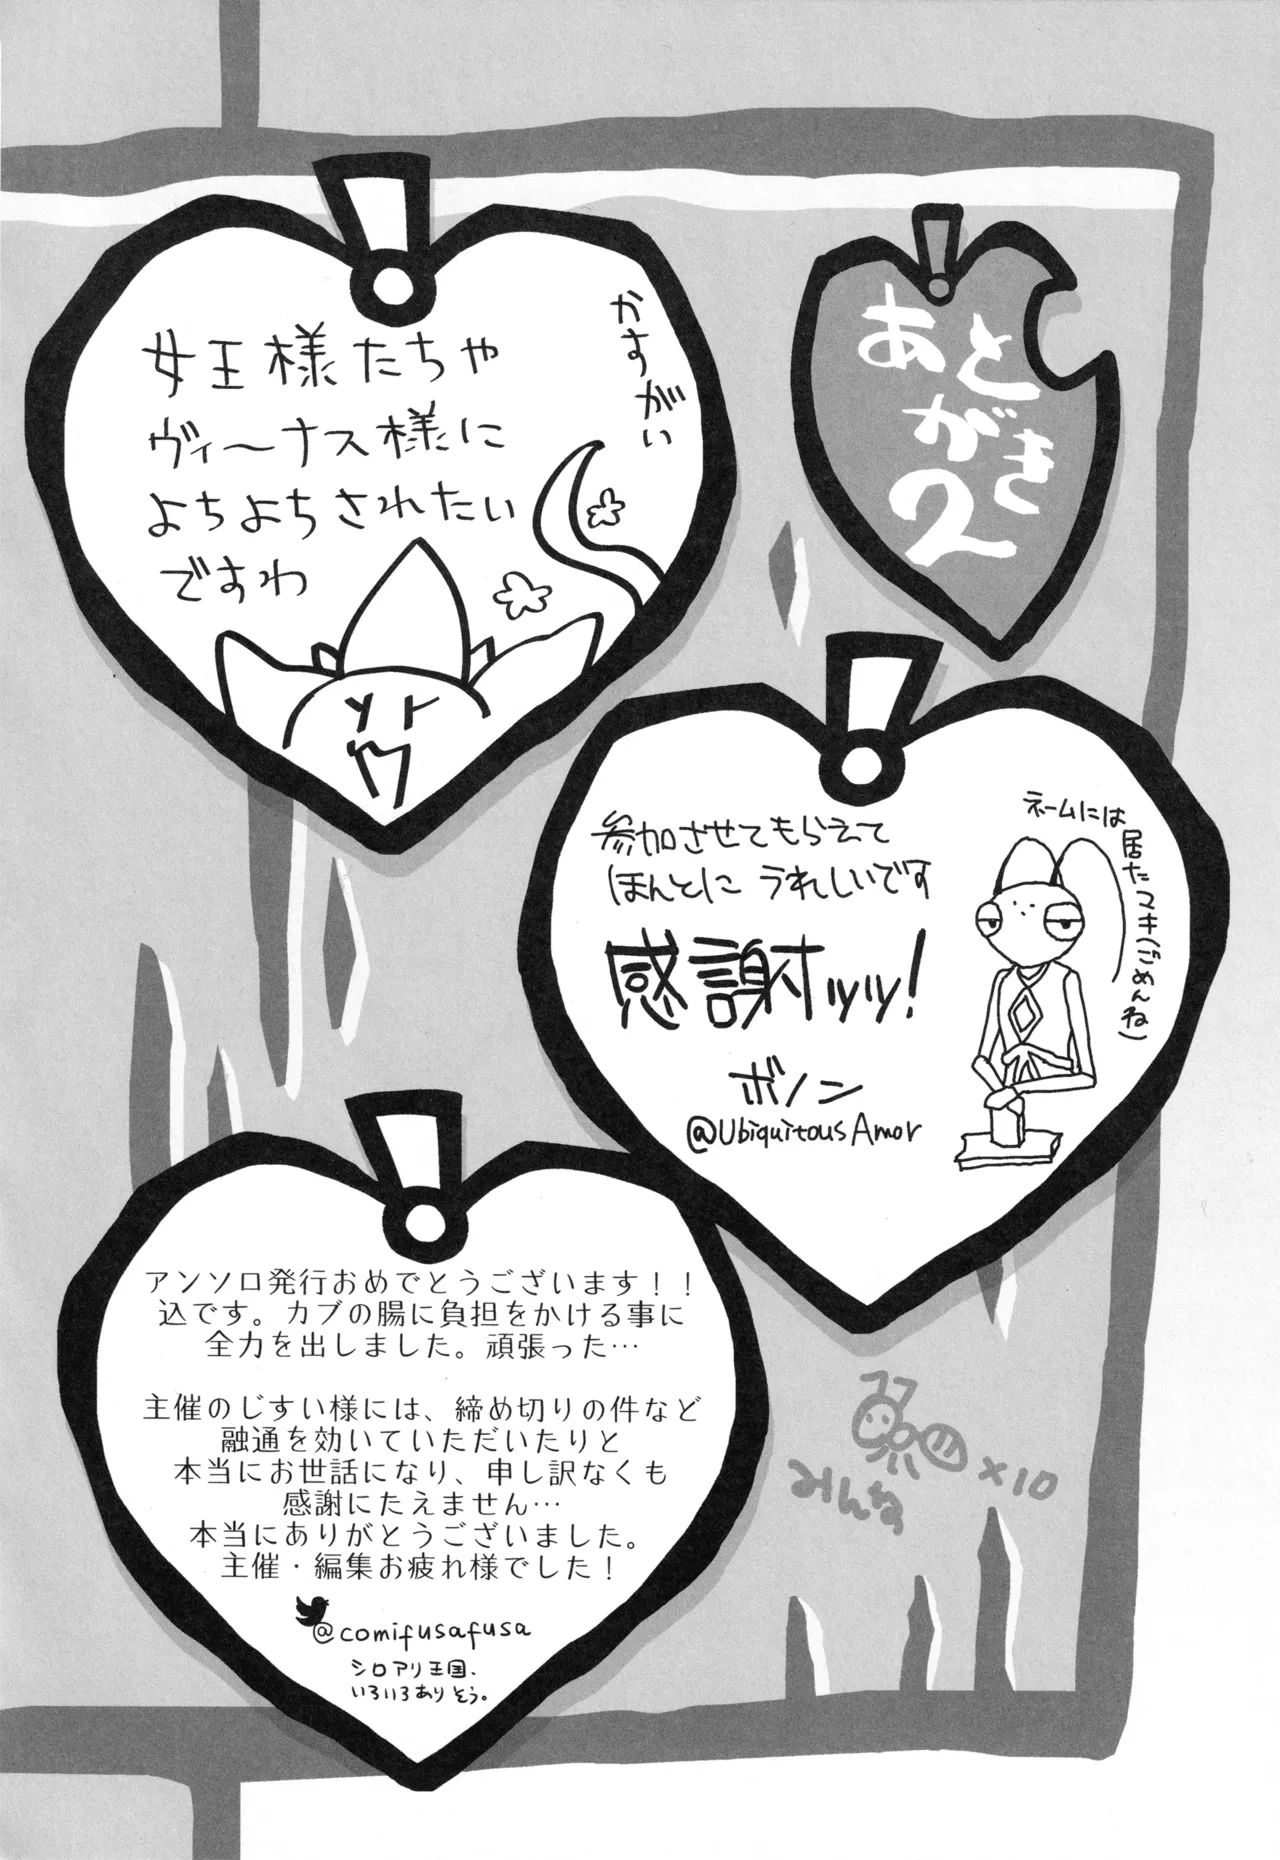 あと
がき
2
かすがい
女王様たちや
ヴィーナス様に
よちよちされたい
ですわ
ネームには
居たマキ(ごめんね)
参加させてもらえて
ほんとに うれしいです
感謝ォッッ!
ボノン
@UbiquitousAmor
アンソロ発行おめでとうございます！！
込です。カブの腸に負担をかける事に
全力を出しました。頑張った…
主催のじすい様には、締め切りの件など
融通を効いていただいたりと
本当にお世話になり、申し訳なくも
感謝にたえません…
本当にありがとうございました。
主催・編集お疲れ様でした！
@comifusafusa
シロアリ王国、
いろいろありそう。
×10
みんな